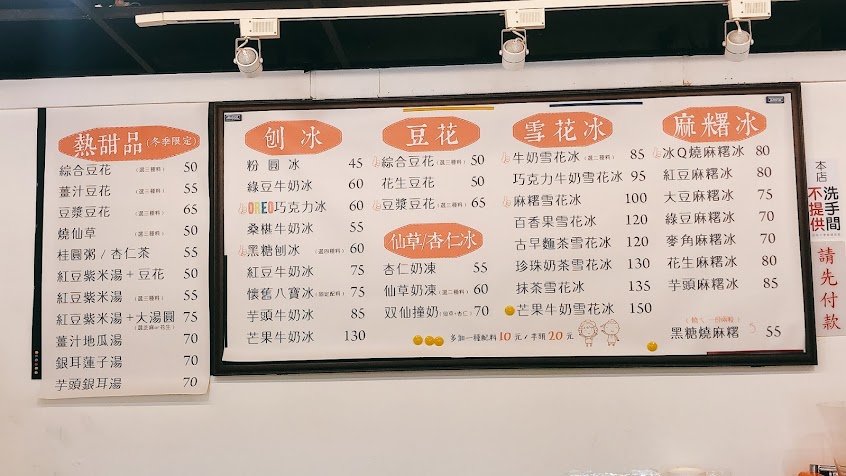 熱甜品(冬季限定)
綜合豆花 (選三種料) 50
薑汁豆花 (選三種料) 55
豆漿豆花 (選三種料) 65
燒仙草 (選三種料) 50
桂圓粥 / 杏仁茶 55
紅豆紫米湯+豆花 50
紅豆紫米湯 (選三種料) 55
紅豆紫米湯+大湯圓 75
(選芝麻or花生)
薑汁地瓜湯 70
銀耳蓮子湯 70
芋頭銀耳湯 70
刨冰
粉圓冰 45
綠豆牛奶冰 60
OREO巧克力冰 60
桑椹牛奶冰 55
黑糖刨冰 (選四種料) 60
紅豆牛奶冰 75
懷舊八寶冰 (固定配料) 75
芋頭牛奶冰 85
芒果牛奶冰 130
豆花
綜合豆花 (選三種料) 50
花生豆花 50
豆漿豆花 (選三種料) 65
仙草/杏仁冰
杏仁奶凍 55
仙草奶凍 (選二種料) 60
双仙撞奶 (仙草+杏仁) 70
多加一種配料10元/芋頭20元
雪花冰
牛奶雪花冰 (選二種料) 85
巧克力牛奶雪花冰 95
麻糬雪花冰 100
百香果雪花冰 120
古早麵茶雪花冰 120
珍珠奶茶雪花冰 130
抹茶雪花冰 135
芒果牛奶雪花冰 150
麻糬冰
冰Q燒麻糬冰 80
紅豆麻糬冰 80
大豆麻糬冰 75
綠豆麻糬冰 70
麥角麻糬冰 70
花生麻糬冰 80
芋頭麻糬冰 85
黑糖燒麻糬 55
本店
不提供
洗手間
請先付款